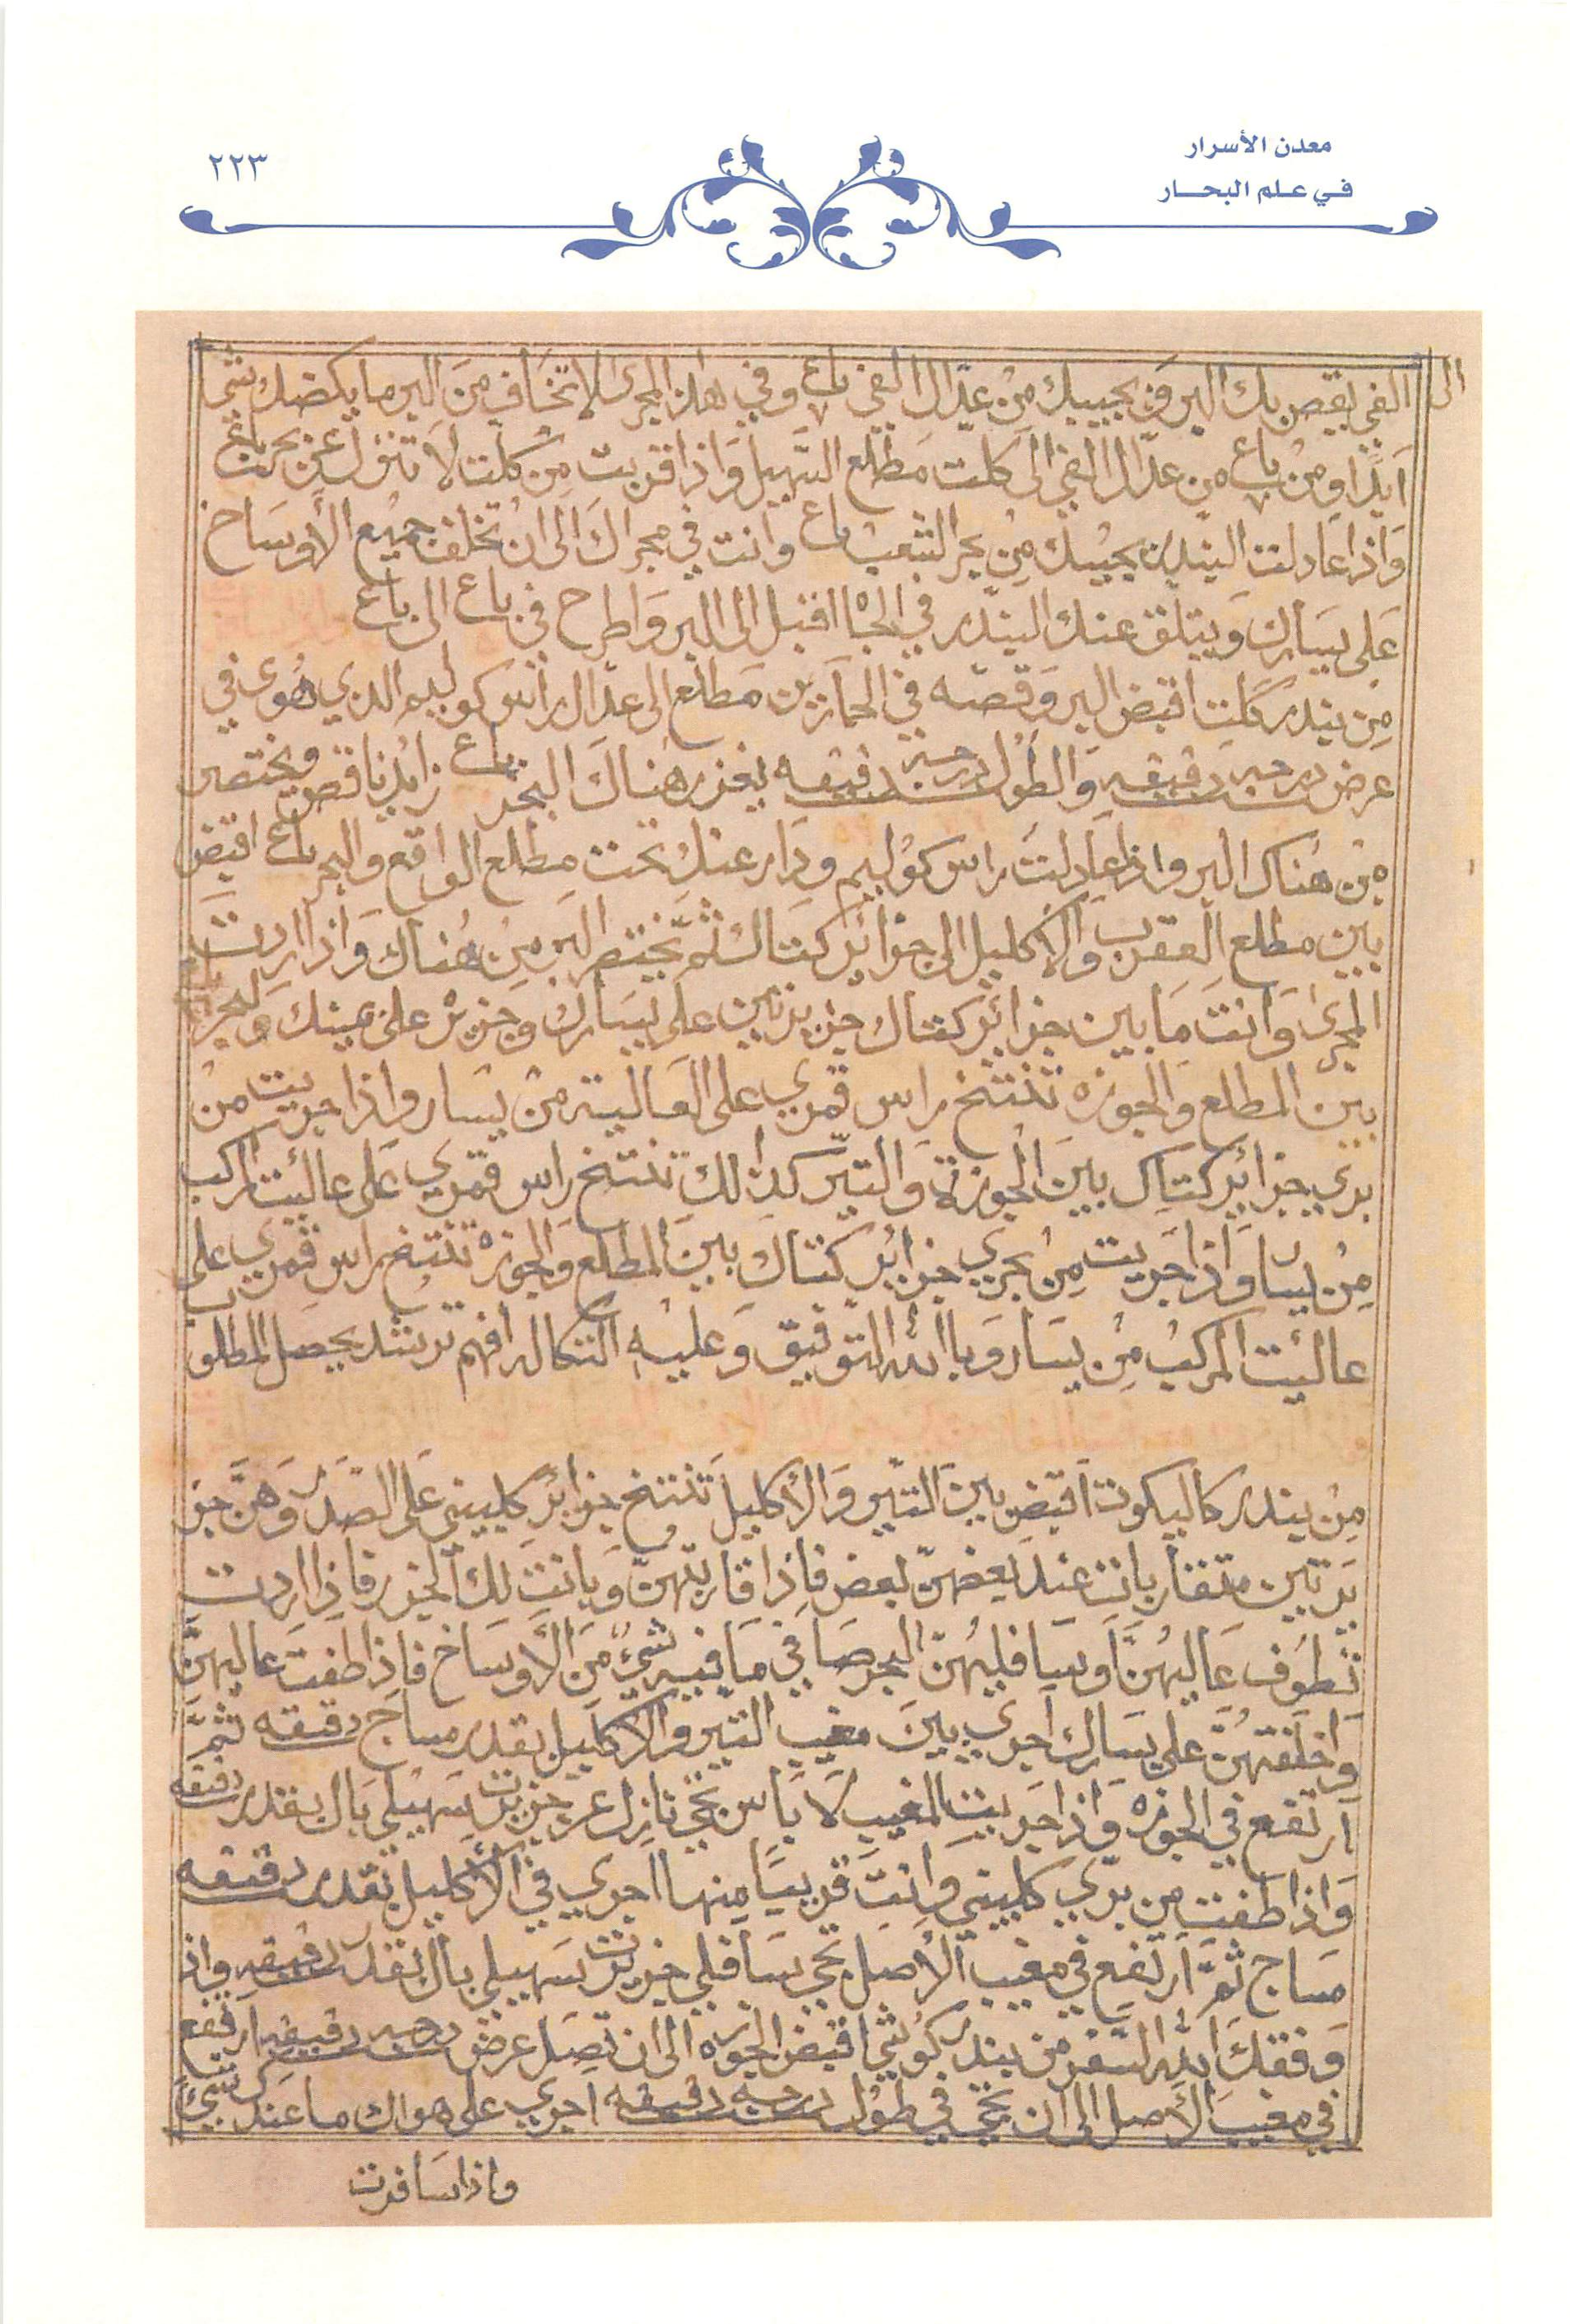 معدن الأسرار
في علم البحار
٢٢٣
الى
الفي يقصر بك البر من يجيبك من عدال الفي باع وفي هاذا المجرى لا تخاف من البر ما يكضك شي
ابدا ومن باع من عدال الفي الى كلت مطلع السهيل واذا قربت من كلت لا تنزل عن بحرت باع
واذا عادلت البندر يجيبك من بحر الشعب باع وانت في مجراك الى ان تخلف جميع الأوساخ
على يسارك ويتلق عنك البندر في الجاه اقبل الى البر واطرح في باع الى باع
من بندر كلت اقبض البر وقصه في الحمارين مطلع الى عدال راس كوليم الدي هوى في
عرض درجه دقيقه والطول درجه دقيقه يغزر هناك البحر باع زايد ناقص ويختصر
من هناك البر واذا عادلت راس كوليم ودار عنك تحت مطلع الواقع والبحر باع اقبض
بين مطلع العقرب والاكليل الى جزائر كتاك ثم يختصر البر من هناك واذا اردت
المجرى وانت ما بين جزائر كتاك جزيرتين على يسارك وجزيره على يمينك والبحر باع
بين المطلع والجوزه تنتخ راس قمري على العالية من يسار واذا جريت من
بري جزائر كتاك بين الجوزة والتير كذالك تنتخ راس قمري على عاليت المركب
من يسار واذا جريت من بحري جزائر كتاك بين المطلع والجوزه تنتخ راس قمري على
عاليت المركب من يسار وبا الله التوفيق وعليه التكاله افهم ترشد يحصل المطلوب
من بندر كاليكوت اقبض بين التير والأكليل تنتخ جزائر كليني على الصدر وهن جز
يرتين متقاربات عند بعضهن بعض فاذا قاربتهن وبانت لك الجزر فاذا اردت
تطوف عاليهن او سافليهن البحر صافي ما فيه شيء من الأوساخ فاذا طفت عاليهن
واخلفتهن على يسارك اجري بين مغيب التير والاكليل بقدر مساج دقيقه ثم
ارتفع في الجوزه واذا جريت المغيب لا باس تجي نازل عن جزيرت سهيلي بال بقدر دقيقه
واذا طفت من بري كليني وانت قريبا منها اجري في الأكليل بقدر دقيقه
مساج ثم ارتفع في مغيب الأصل تجي سافلي جزيرت سهيلي بال بقدر دقيقه واذ
وفقك الله السفر من بندر كوشي اقبض الجوزه الى ان تصل عرض درجه دقيقه ارتفع
في مغيب الأصل الى ان تجي في طول درجه دقيقه اجري على هواك ما عندك شيء
واذا سافرت